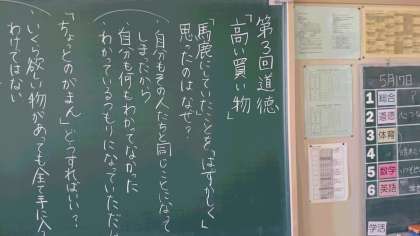 第3回道徳
「高い買い物」
「馬鹿にしていたことをはずかしく」
思ったのはなぜ?
・自分もその人たちと同じことになって
しまったから
・自分も何もわかってなかった
・わかっているつもりになっていただけ
「ちょっとのがまん」どうすればいい?
・いくら欲しい物があっても全て手に入る
わけではない
5月17日
1 総合 ?
2 道徳
3 体育
4
5 数学
6 英語
学活